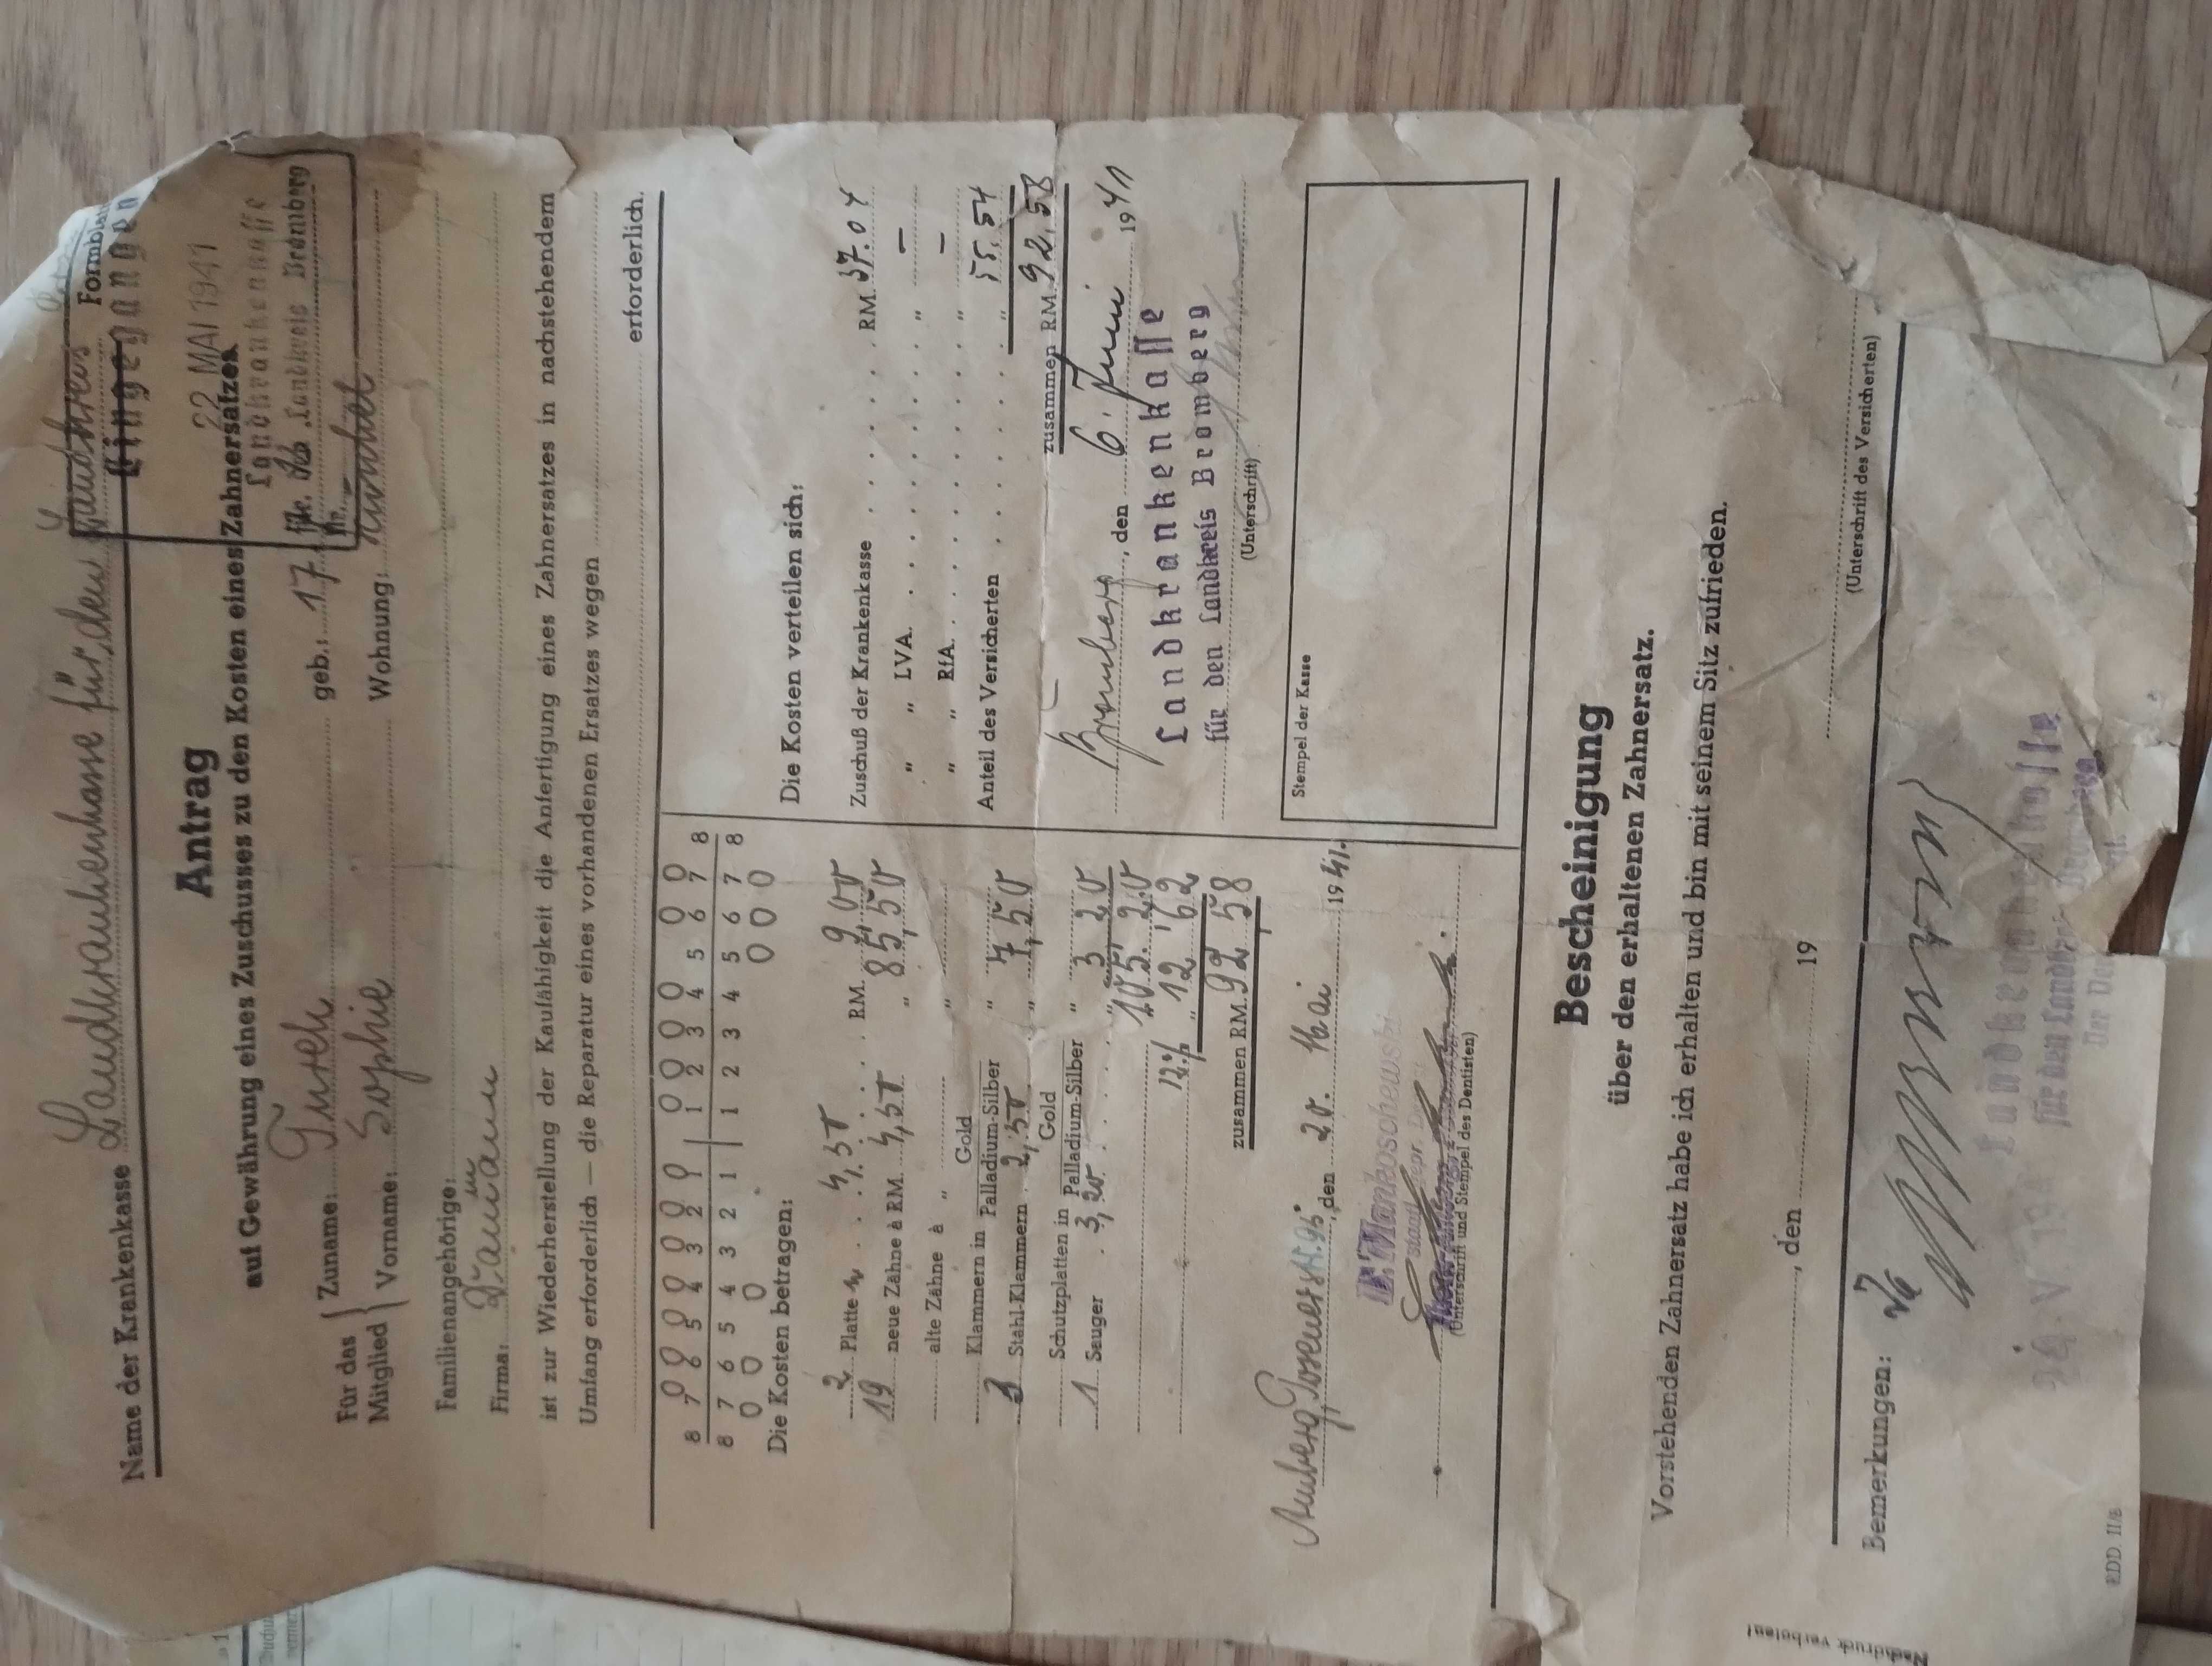 Formblatt
Name der Krankenkasse Landkrankenkasse für den Landkreis
Eingegangen
22 MAI 1941
Landkrankenkasse
für den Landkreis Bromberg
Antrag
auf Gewährung eines Zuschusses zu den Kosten eines Zahnersatzes
Für das Mitglied { Zuname: Turek geb.: 17.
Vorname: Sophie Wohnung:
Familienangehörige:
Firma:
ist zur Wiederherstellung der Kaufähigkeit die Anfertigung eines Zahnersatzes in nachstehendem
Umfang erforderlich — die Reparatur eines vorhandenen Ersatzes wegen
erforderlich.
8 7 6 5 4 3 2 1 | 1 2 3 4 5 6 7 8
8 7 6 5 4 3 2 1 | 1 2 3 4 5 6 7 8
Die Kosten betragen:
2 Platten . . 4,50 . . . RM. 9,00
19 neue Zähne à RM. 4,50 " 85,50
alte Zähne à " "
Klammern in Gold Palladium-Silber "
3 Stahl-Klammern 2,50 " 7,50
Schutzplatten in Gold Palladium-Silber "
1 Sauger . 3,20 . . . " 3 20
105,20
12% " 12,62
zusammen RM. 92 58
Posenerstr. 95, den 20. Mai 1941.
F. Mankoschewski
staatl. gepr. D
(Unterschrift und Stempel des Dentisten)
Die Kosten verteilen sich:
Zuschuß der Krankenkasse . . . . . . RM. 37.04
" " LVA. . . . . . . . . " —
" " RfA. . . . . . . . . " —
Anteil des Versicherten . . . . . . " 55,54
zusammen RM. 92,58
Bromberg, den 6. Juni 1941
Landkrankenkasse
für den Landkreis Bromberg
(Unterschrift)
Stempel der Kasse
Bescheinigung
über den erhaltenen Zahnersatz.
Vorstehenden Zahnersatz habe ich erhalten und bin mit seinem Sitz zufrieden.
, den 19
(Unterschrift des Versicherten)
Bemerkungen:
Landkrankenkasse
für den Landkreis Bromberg
Der
RDD. II/8
Nachdruck verboten!